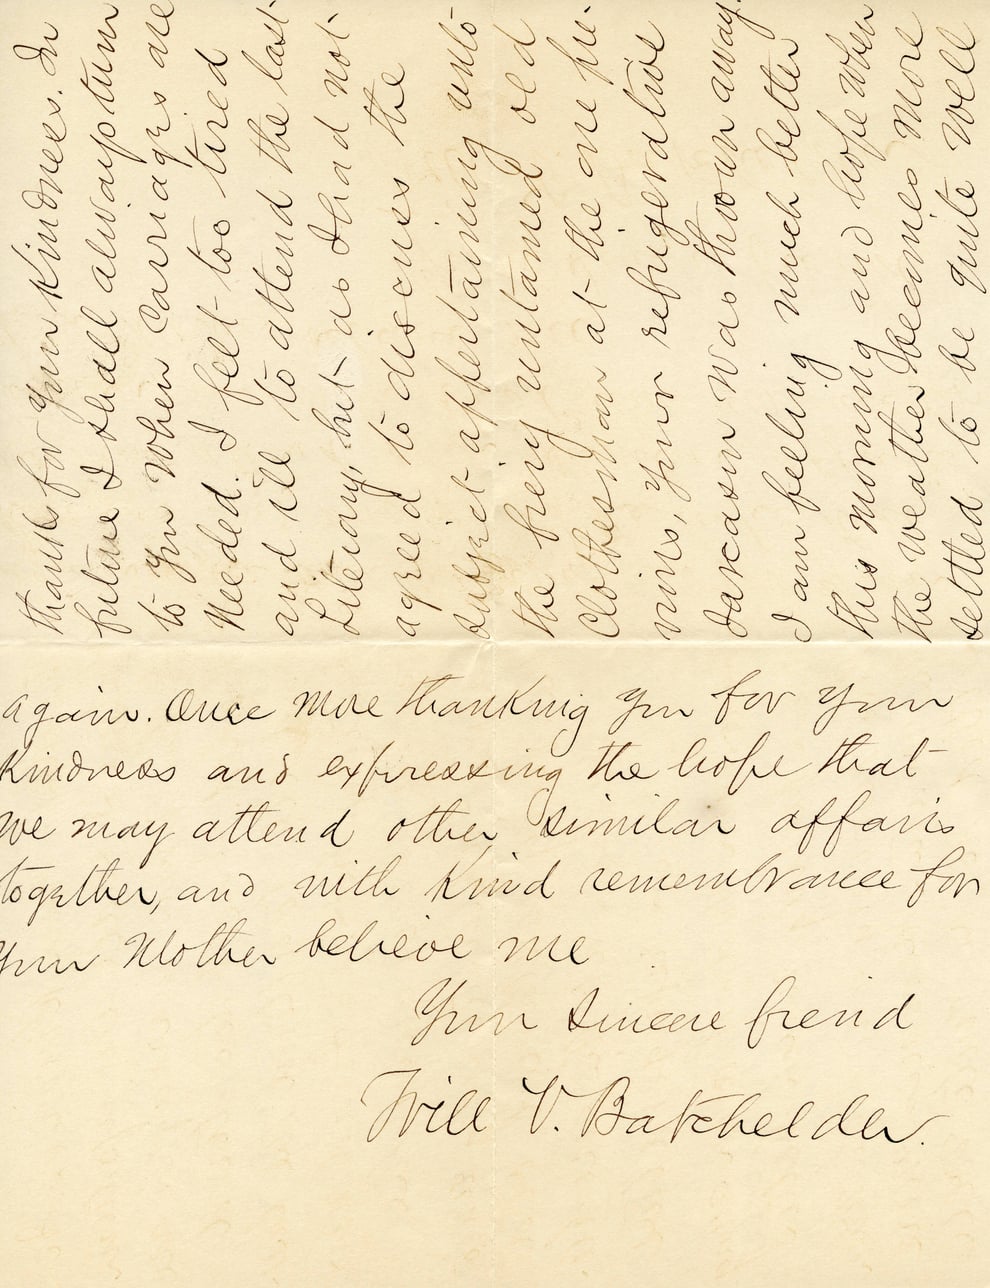 thanks for your kindness. In
future I shall always turn
to you when carriages are
needed. I felt too tired
and ill to attend the last
Literary, but as I had not
agreed to discuss the
subject appertaining unto
the fiery untamed old
Clotheshoar at the one pre-
vious, your refrigerative
sarcasm was thrown away.
I am feeling much better
this morning and hope when
the weather becomes more
settled to be quite well
again. Once more thanking you for your
kindness and expressing the hope that
we may attend other similar affairs
together, and with kind remembrance for
your Mother believe me
Your sincere friend
Will V. Batchelder.